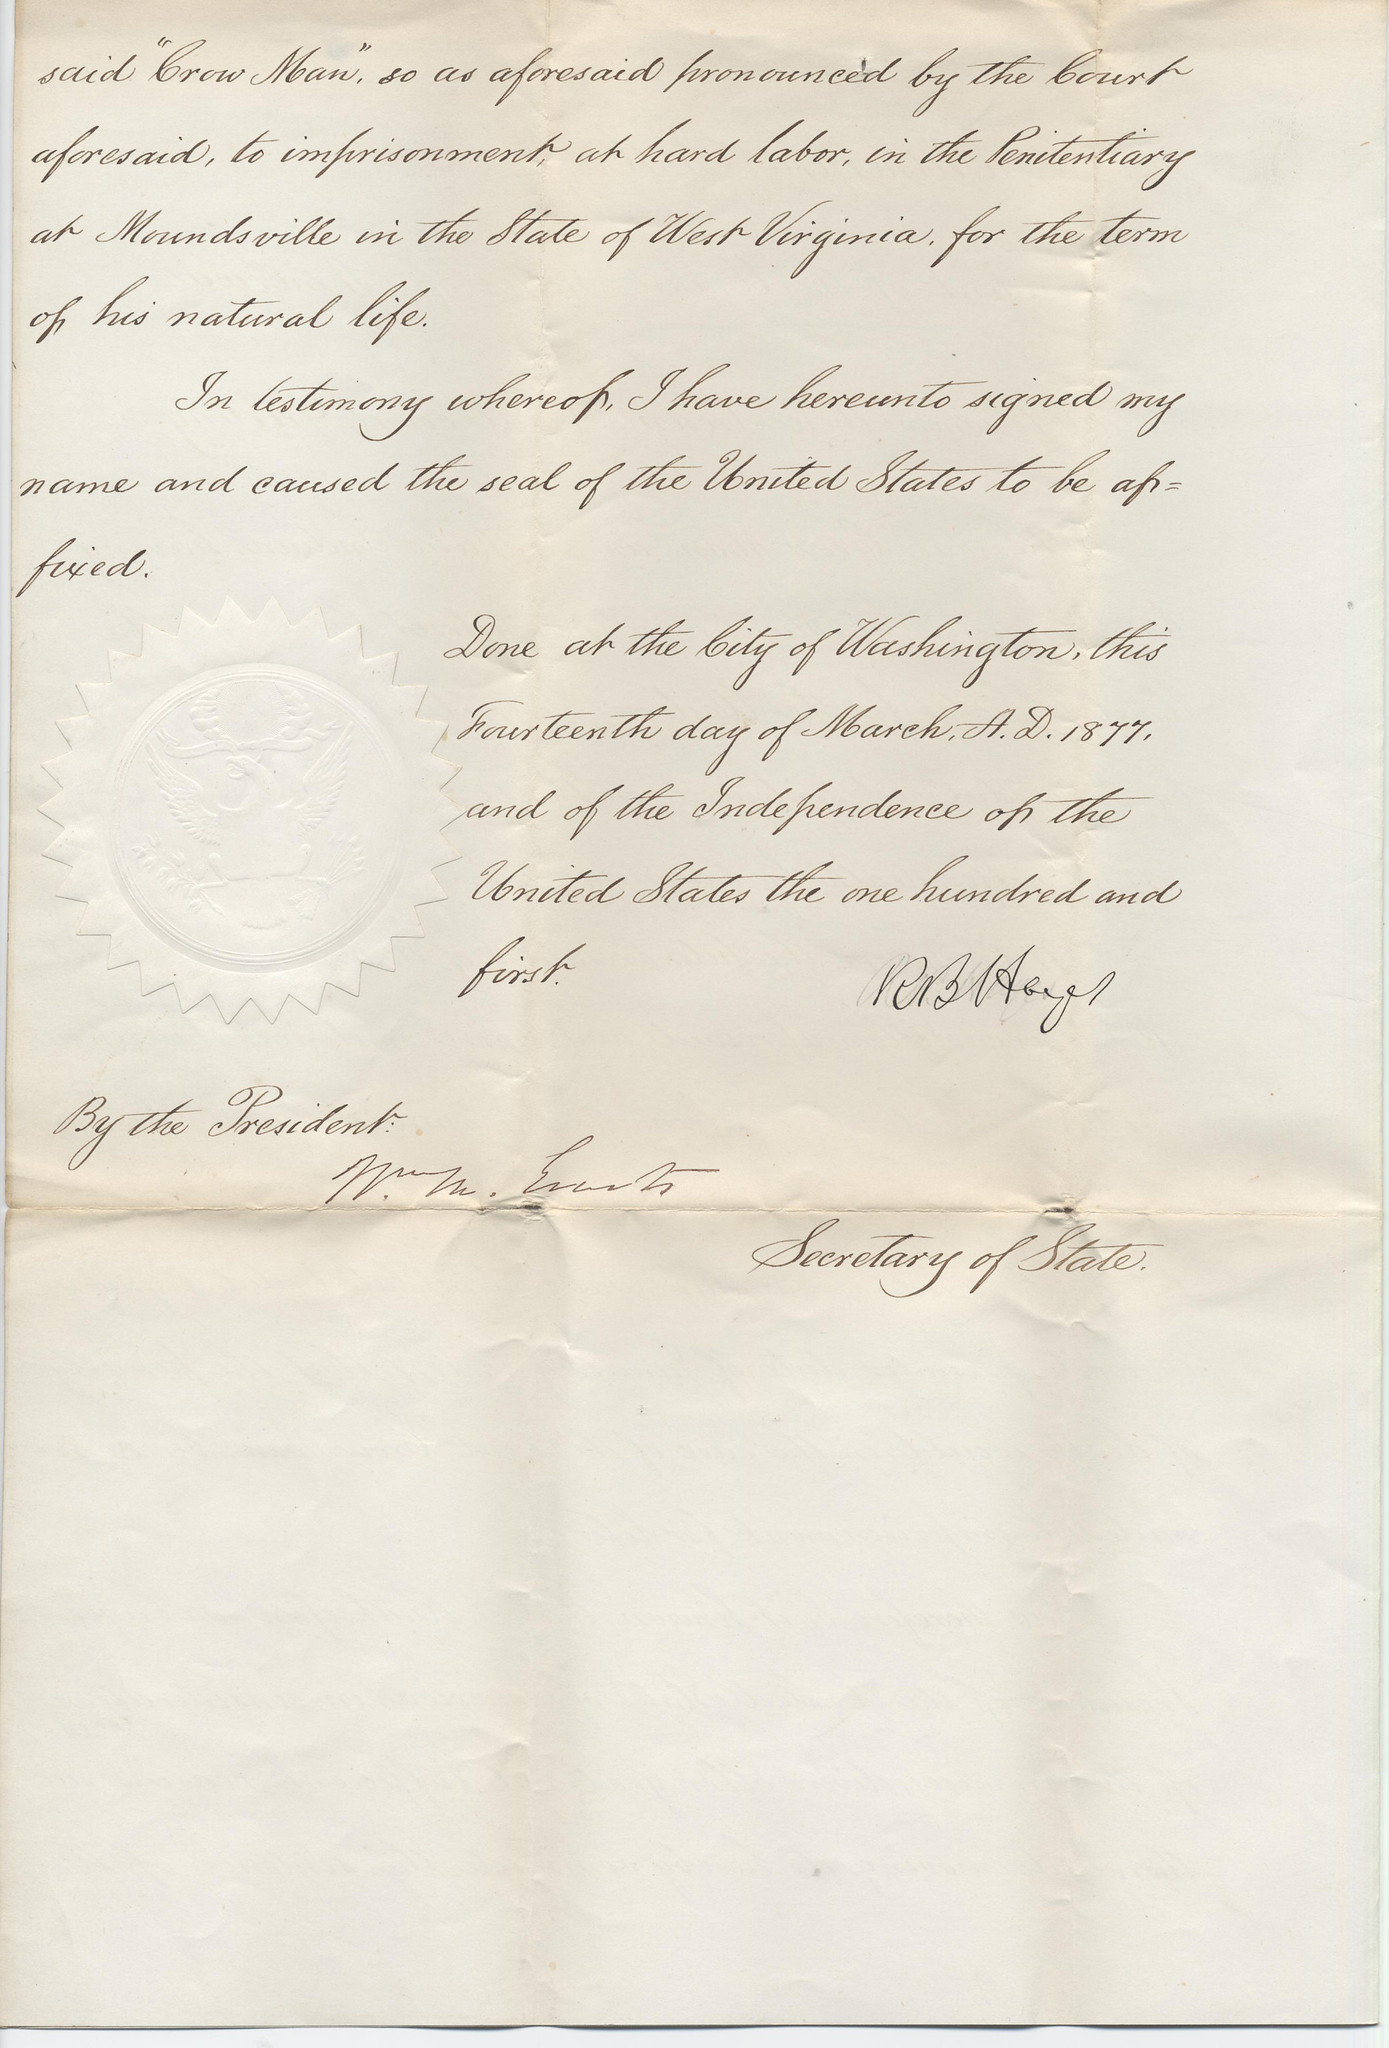 said "Crow Man", so as aforesaid pronounced by the Court
aforesaid, to imprisonment, at hard labor, in the Penitentiary
at Moundsville in the State of West Virginia, for the term
of his natural life.
In testimony whereof, I have hereunto signed my
name and caused the seal of the United States to be af=
fixed.
Done at the City of Washington, this
Fourteenth day of March, A.D. 1877,
and of the Independence of the
United States the one hundred and
first.
R B Hayes
By the President:
Wm. M. Evarts
Secretary of State.